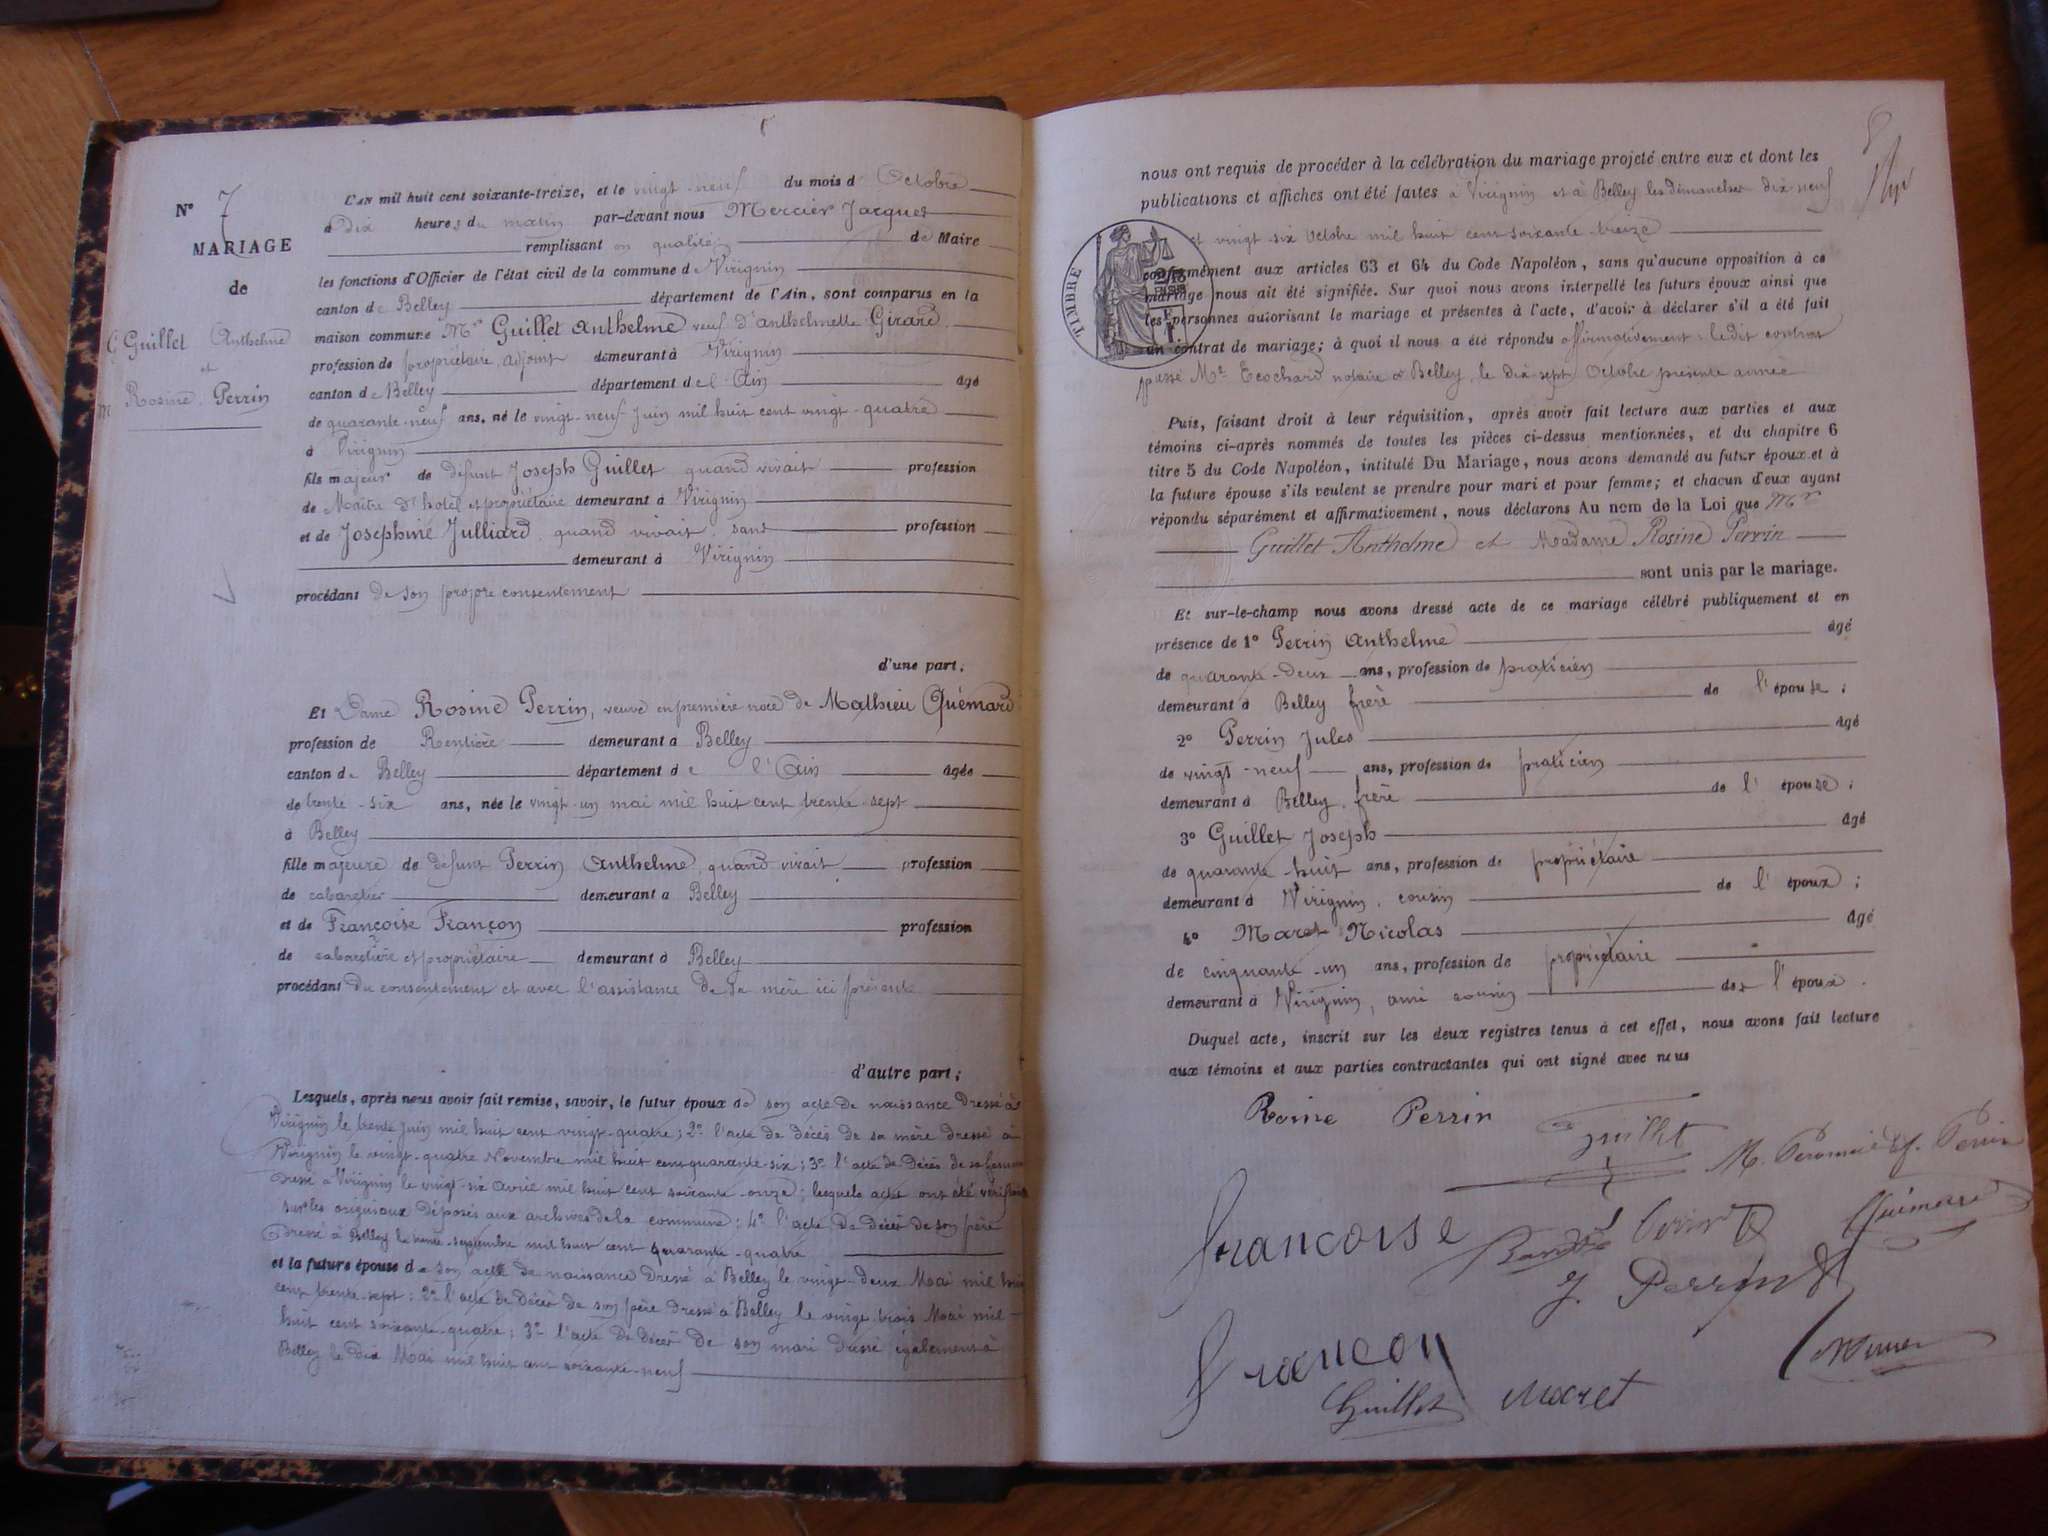 N° 7
MARIAGE
de
Guillet Anthelme
et
Rosine Perrin
L'AN mil huit cent soixante-treize, et le vingt-neuf du mois d'Octobre
à Dix heures du matin par-devant nous Mercier Jacques
remplissant en qualité de Maire
les fonctions d'Officier de l'état civil de la commune de Virignin
canton de Belley département de l'Ain, sont comparus en la
maison commune Mr Guillet Anthelme veuf d'Anthelmette Girard
profession de propriétaire, adjoint demeurant à Virignin
canton de Belley département de l'Ain âgé
de quarante-neuf ans, né le vingt-neuf Juin mil huit cent vingt-quatre
à Virignin
fils majeur de défunt Joseph Guillet quand vivait profession
de Maître d'hôtel et propriétaire demeurant à Virignin
et de Joséphine Julliard, quand vivait, sans profession
demeurant à Virignin
procédant de son propre consentement
d'une part,
Et Dame Rosine Perrin, veuve en première noce de Mathieu Quémard
profession de Rentière demeurant à Belley
canton de Belley département de l'Ain âgée
de trente-six ans, née le vingt-un mai mil huit cent trente-sept
à Belley
fille majeure de défunt Perrin Anthelme, quand vivait profession
de cabaretier demeurant à Belley
et de Françoise Françon profession
de cabaretière et propriétaire demeurant à Belley
procédant du consentement et avec l'assistance de sa mère ici présente
d'autre part;
Lesquels, après nous avoir fait remise, savoir, le futur époux de son acte de naissance dressé à
Virignin le trente Juin mil huit cent vingt-quatre; 2° l'acte de décès de sa mère dressé à
Virignin le vingt-quatre Novembre mil huit cent quarante-six; 3° l'acte de décès de sa femme
dressé à Virignin le vingt-six avril mil huit cent soixante-onze; lesquels actes ont été vérifiés
sur les originaux déposés aux archives de la commune; 4° l'acte de décès de son père
dressé à Belley le trente-septembre mil huit cent quarante-quatre
et la future épouse de son acte de naissance dressé à Belley le vingt-deux Mai mil huit
cent trente-sept; 2° l'acte de décès de son père dressé à Belley le vingt-trois Mai mil
huit cent soixante-quatre; 3° l'acte de décès de son mari dressé également à
Belley le dix Mai mil huit cent soixante-neuf
nous ont requis de procéder à la célébration du mariage projeté entre eux et dont les
publications et affiches ont été faites à Virignin et à Belley les dimanches dix-neuf
et vingt-six octobre mil huit cent soixante-treize
conformément aux articles 63 et 64 du Code Napoléon, sans qu'aucune opposition à ce
mariage nous ait été signifiée. Sur quoi nous avons interpellé les futurs époux ainsi que
les personnes autorisant le mariage et présentes à l'acte, d'avoir à déclarer s'il a été fait
un contrat de mariage; à quoi il nous a été répondu affirmativement: le dit contrat
passé Me Ecochard notaire à Belley, le dix-sept Octobre présente année
TIMBRE
Puis, faisant droit à leur réquisition, après avoir fait lecture aux parties et aux
témoins ci-après nommés de toutes les pièces ci-dessus mentionnées, et du chapitre 6
titre 5 du Code Napoléon, intitulé Du Mariage, nous avons demandé au futur époux et à
la future épouse s'ils veulent se prendre pour mari et pour femme; et chacun d'eux ayant
répondu séparément et affirmativement, nous déclarons Au nom de la Loi que Mr
Guillet Anthelme et Madame Rosine Perrin
sont unis par le mariage.
Et sur-le-champ nous avons dressé acte de ce mariage célébré publiquement et en
présence de 1° Perrin Anthelme âgé
de quarante-deux ans, profession de praticien
demeurant à Belley frère de l'épouse;
2° Perrin Jules âgé
de vingt-neuf ans, profession de praticien
demeurant à Belley, frère de l'épouse;
3° Guillet Joseph âgé
de quarante-huit ans, profession de propriétaire
demeurant à Virignin, cousin de l'époux;
4° Maret Nicolas âgé
de cinquante-un ans, profession de propriétaire
demeurant à Virignin, ami cousin de l'époux.
Duquel acte, inscrit sur les deux registres tenus à cet effet, nous avons fait lecture
aux témoins et aux parties contractantes qui ont signé avec nous
Rosine Perrin Guillet
Francoise
Quimard
J. Perrin
Françon
Guillet Maret